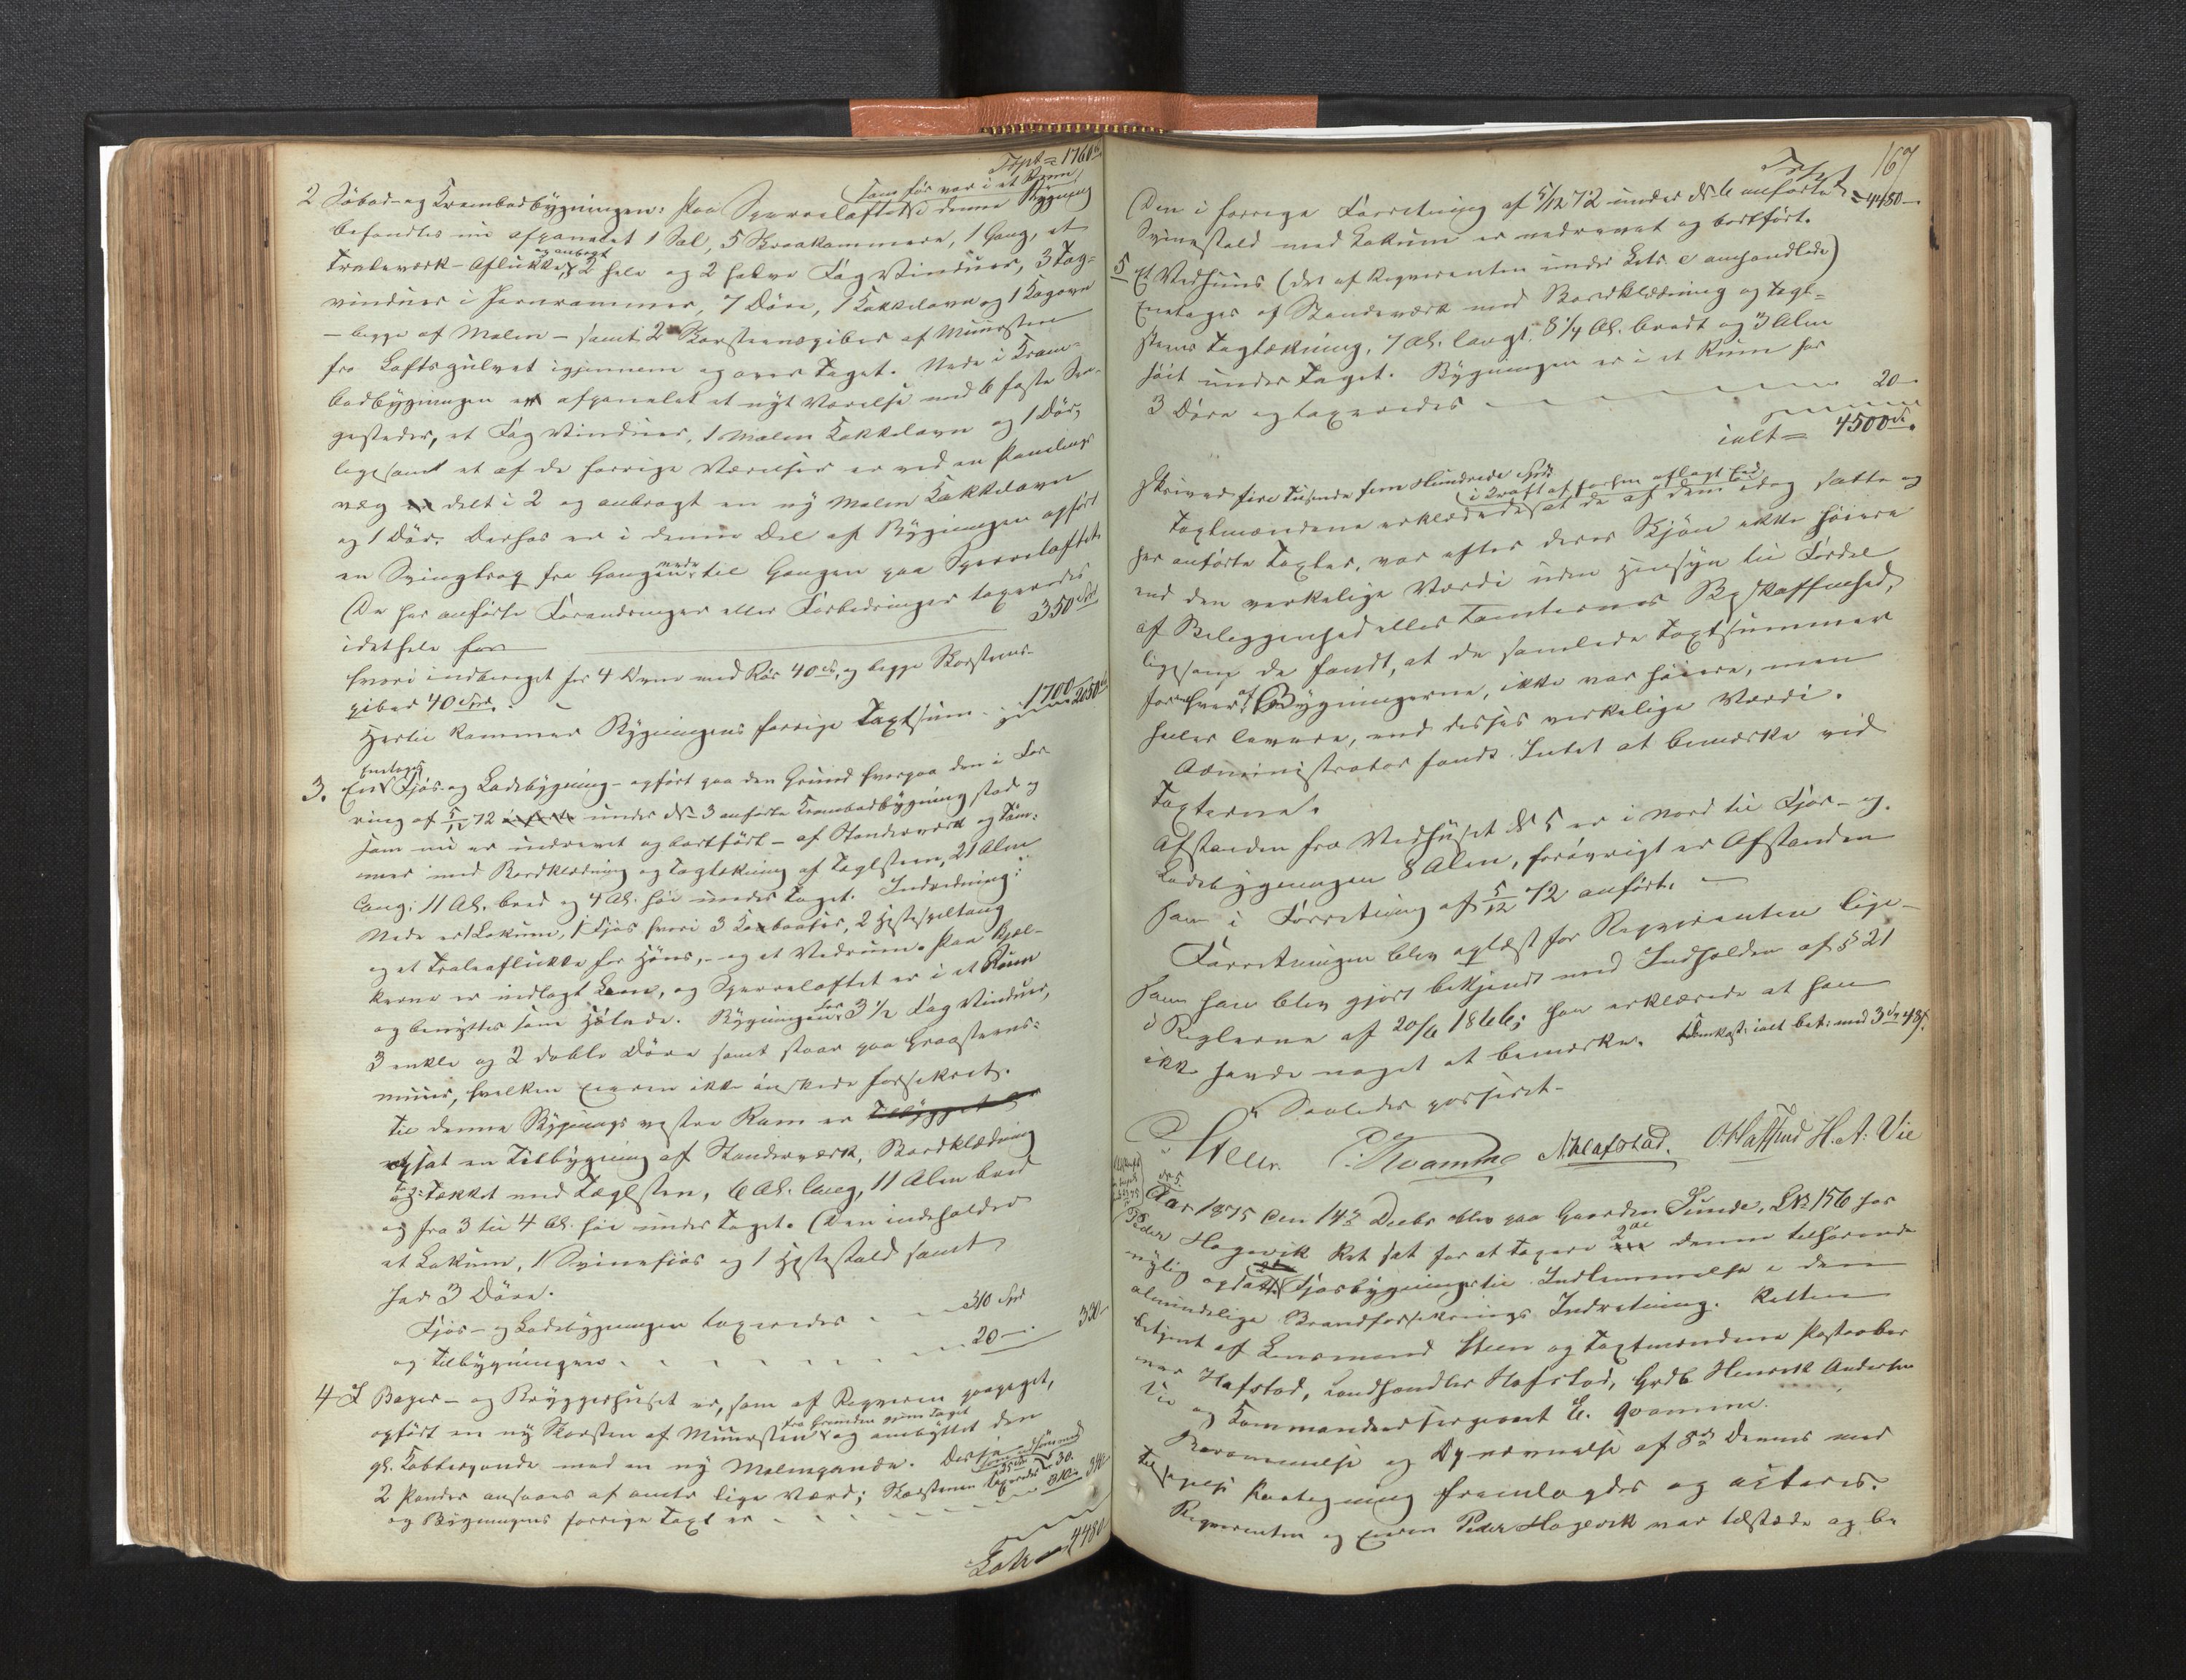 Trpt = 1760
(som før var i et Rum)
2 Søbod- og Krambodbygningen: Paa Sperreloftet denne Bygning
befandtes nu afpanelet 1 Sal, 5 Kvistkammere, 1 Gang, et
og anbragt
Traleværk-Aflukke, 2 hele og 2 halve Fag Vinduer, 3 Tag-
vinduer i Jernrammer, 7 Døre, 1 Kakkelovn og 1 Kogovn
- begge af Malm - samt 2 Skorsteenspiber af Muursteen
fra Loftsgulvet igjennem og over Taget. Nede i Kram-
bodbygningen er afpanelet et nyt Værelse med 6 faste Sen-
gesteder, et Fag Vinduer, 1 Malm Kakkelovn og 1 Dør,
ligesom et af de forrige Værelser er ved en Panelings
væg delt i 2 og anbragt en ny Malm Kakkelovn
og 1 Dør. Derhos er i denne Del af Bygningen opført
en Svingtrap fra Gangen nede til Gangen paa Sperreloftet.
De her anførte Forandringer eller Forbedringer taxeredes
idethele for 350 Spd
hvori indberegnet for 4 Ovne med Rør 40 Sp, og begge Skorsteens-
piber 40 Spd.
Hertil kommer Bygningens forrige Taxtsum 1700 2050
3. En Fjøs- og Ladebygning - opført paa den Grund hvorpaa den i For
Eentages
ning af 5/12 72 under No 3 anførte Krambodbygning stod og
som nu er nedrevet og bortført - af Standerværk og Tøm-
mer med Bordklædning og Tagtækning af Teglsteen, 21 Alen
lang, 11 Al. bred og 4 Al. høi under Taget. Indredning:
Nede er 1 Lokum, 1 Fjøs hvori 3 Koebaaser, 2 Hestespiltoug
og et Traleaflukke for Høns, - og et Vedrum. Paa Bjæl-
kerne er indlagt Lem, og Sperreloftet er i et Rum
og benyttes som Høelade. Bygningen har 3 1/2 Fag Vinduer,
3 enkle og 2 doble Døre samt staar paa Graasteens-
muur, hvilken Eieren ikke ønskede forsikret.
Til denne Bygnings vestre Ram er
opsat en Tilbygning af Standerværk, Bordklædning
og tækket med Tæglsten, 6 Al. lang, 11 Alen bred
og fra 3 til 4 Al. høi under Taget. Den indeholder
et Lokum, 1 Svinefjøs og 1 Hestestald samt
har 3 Døre.
Fjøs- og Ladebygningen taxeredes 310 Spd
og Tilbygningen 20 — 330
4 I Bager- og Bryggerhuset er, som af Reqvirenten paapeget,
opført en ny Skorsten af Muursten fra Grunden gjennem Taget og ombyttet den
gl. Kobberpande med en ny Malmpande. Disse
2 Pander ansaaes af omtr lige Værd; Skorstenen taxeredes 30
og Bygningens forrige Taxt er 310 340
Lat 4480
167
Trpt = 4480
Den i forrige Forretning af 5/12 72 under No 6 anførte
Svinestald med Lokum er nedrevet og bortført.
5 Et Vedhuus (det af Reqvirenten under Litr. c omhandlede)
Eentages af Standerværk med Bordklædning og Tegl-
steens Tagtækning, 7 Al. langt, 8 1/4 Al. bredt og 3 Alen
høit under Taget. Bygningen er i et Rum har
3 Døre og taxeredes 20 —
ialt = 4500 Sp.
Skriver fire Tusende fem Hundrede Spd
i Kraft af forhen aflagt Eed
Taxtmændene erklærede at de af dem idag satte og
her anførte Taxter, var efter deres Skjøn ikke høiere
end den verkelige Værdi uden Hensyn til Fordel
af Beliggenhed eller Tomternes Beskaffenhed,
ligesom de fandt, at de samlede Taxtsummer
for hver af Bygningerne, ikke var høiere, men
heller lavere, end disses verkelige Værdi.
Administrator fandt Intet at bemærke ved
Taxterne.
Afstanden fra Vedhuset No 5 er i Nord til Fjøs- og
Ladebygningen 8 Alen, forøvrigt er Afstanden
som i Forretning af 5/12 72 anført.
Forretningen blev oplæst for Reqvirenten lige-
som han blev gjort bekjendt med Indholden af § 21
i Reglerne af 20/6 1866; han erklærede at han
ikke havde noget at bemærke. Omkost: ialt bet: med 3 Sp 43 s.
Saaledes passeret.
Steen. E. Kvamme N. Hafstad. O. Hafstad H. A. Vie
No 5.
Aar 1875 den 14de Decbr blev paa Gaarden Sunde, LNo 156 hos
Peder Hagevik Ret sat for at taxere 2de denne tilhørende
nylig opsatte Fjøsbygninger til Indlemmelse i den
almindelige Brandforsikrings Indretning. Retten
betjent af Lensmand Steen og Taxtmændene Postaabner
N Hafstad, Landhandler Hafstad, Grdb. Henrik Andersen
Vie og Kommandersergeant E. Qvamme.
Reqvisition og Opnævnelse af 8de Dennes med
Tilføiet Paategning fremlagdes og acteres.
Reqvirenten og Eieren Peder Hagevik var tilstæde og be